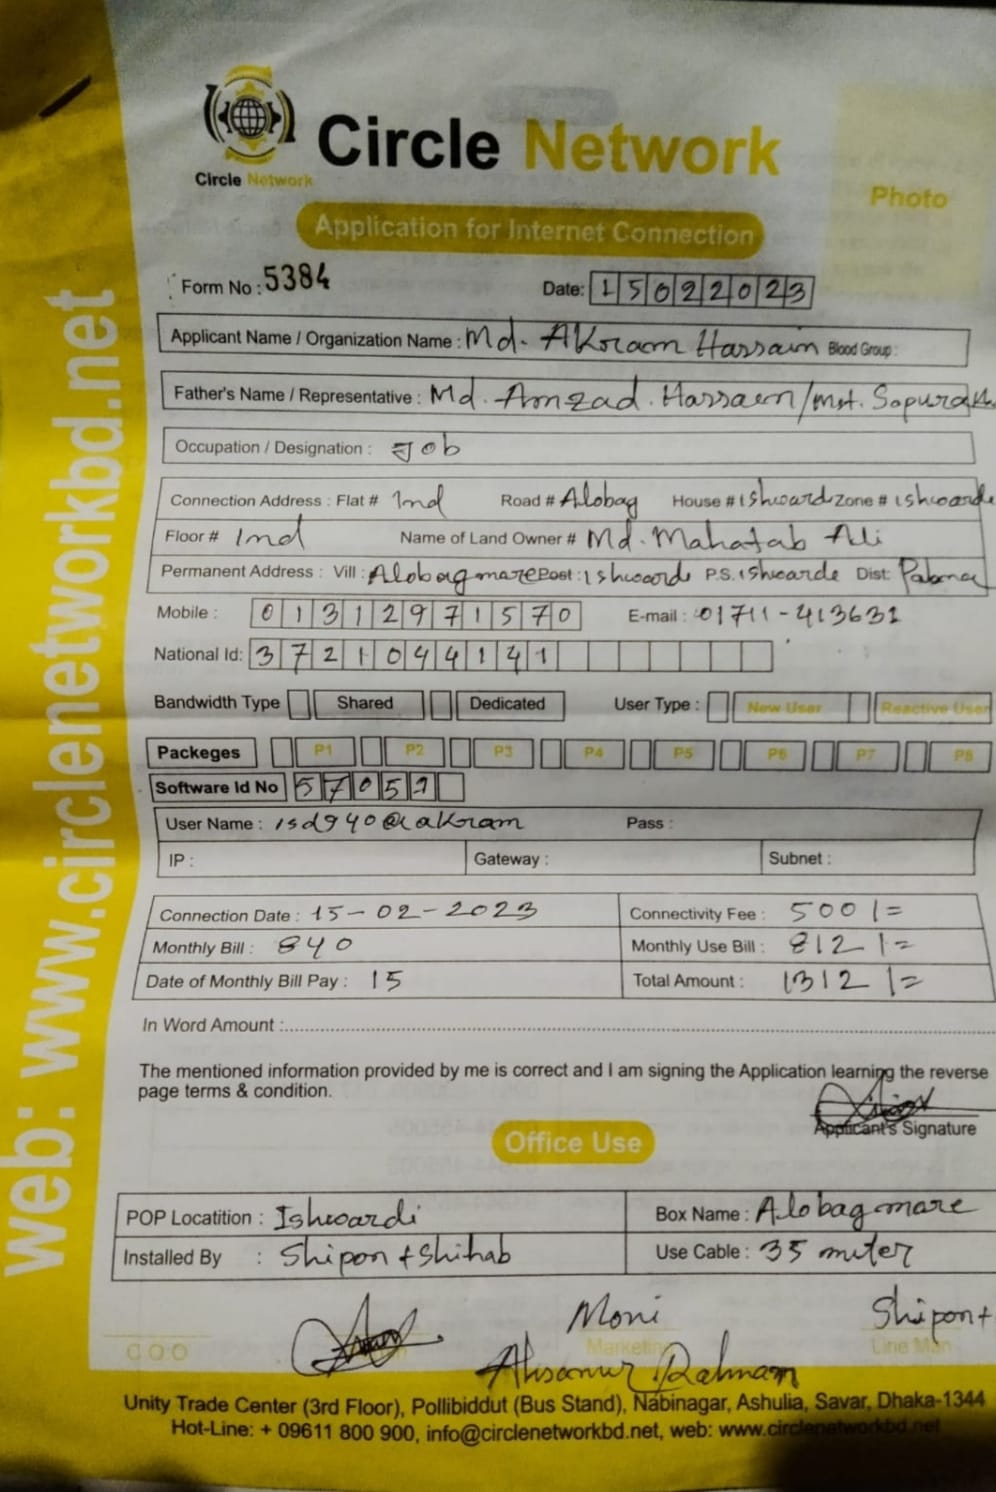 Circle Network
Circle Network
Photo
Application for Internet Connection
Form No : 5384 Date: 15022023
Applicant Name / Organization Name : Md. AKram Hassain Blood Group :
Father's Name / Representative : Md. Amzad. Hassaen/mst. Sapura
Occupation / Designation : Job
Connection Address : Flat # 1nd Road # Alobag House # ishwardi Zone # ishwarde
Floor # 1nd Name of Land Owner # Md. Mahatab Ali
Permanent Address : Vill : Alobagmare Post : Ishwarde P.S. ishwarde Dist: Pabna
Mobile : 01312971570 E-mail : 01711-413631
National Id: 3721044141
Bandwidth Type Shared Dedicated User Type : New User Reactive User
Packeges P1 P2 P3 P4 P5 P6 P7 P8
Software Id No 57057
User Name : isd940@akram Pass :
IP : Gateway : Subnet :
Connection Date : 15-02-2023 Connectivity Fee : 500/=
Monthly Bill : 840 Monthly Use Bill : 812/=
Date of Monthly Bill Pay : 15 Total Amount : 1312/=
In Word Amount :
The mentioned information provided by me is correct and I am signing the Application learning the reverse
page terms & condition.
Applicant's Signature
Office Use
POP Locatition : Ishwardi Box Name : Alobagmare
Installed By : Shipon + Shihab Use Cable : 35 miter
Moni Shipon+
Marketing Line Man
Ahsanur Rahman
Unity Trade Center (3rd Floor), Pollibiddut (Bus Stand), Nabinagar, Ashulia, Savar, Dhaka-1344
Hot-Line: + 09611 800 900, info@circlenetworkbd.net, web: www.circlenetworkbd.net
web: www.circlenetworkbd.net